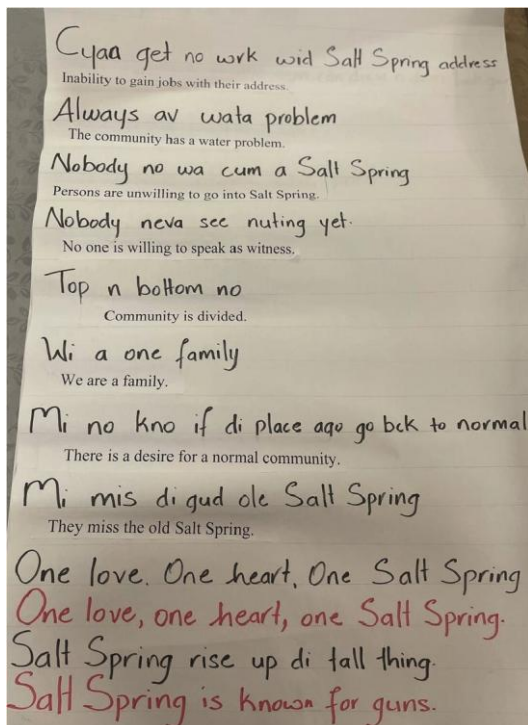 Cyaa get no wrk wid Salt Spring address
Inability to gain jobs with their address.
Always av wata problem
The community has a water problem.
Nobody no wa cum a Salt Spring
Persons are unwilling to go into Salt Spring.
Nobody neva see nuting yet.
No one is willing to speak as witness.
Top n bottom no
Community is divided.
Wi a one family
We are a family.
Mi no kno if di place ago go bck to normal
There is a desire for a normal community.
Mi mis di gud ole Salt Spring
They miss the old Salt Spring.
One love. One heart, One Salt Spring
One love, one heart, one Salt Spring.
Salt Spring rise up di tall thing.
Salt Spring is known for guns.